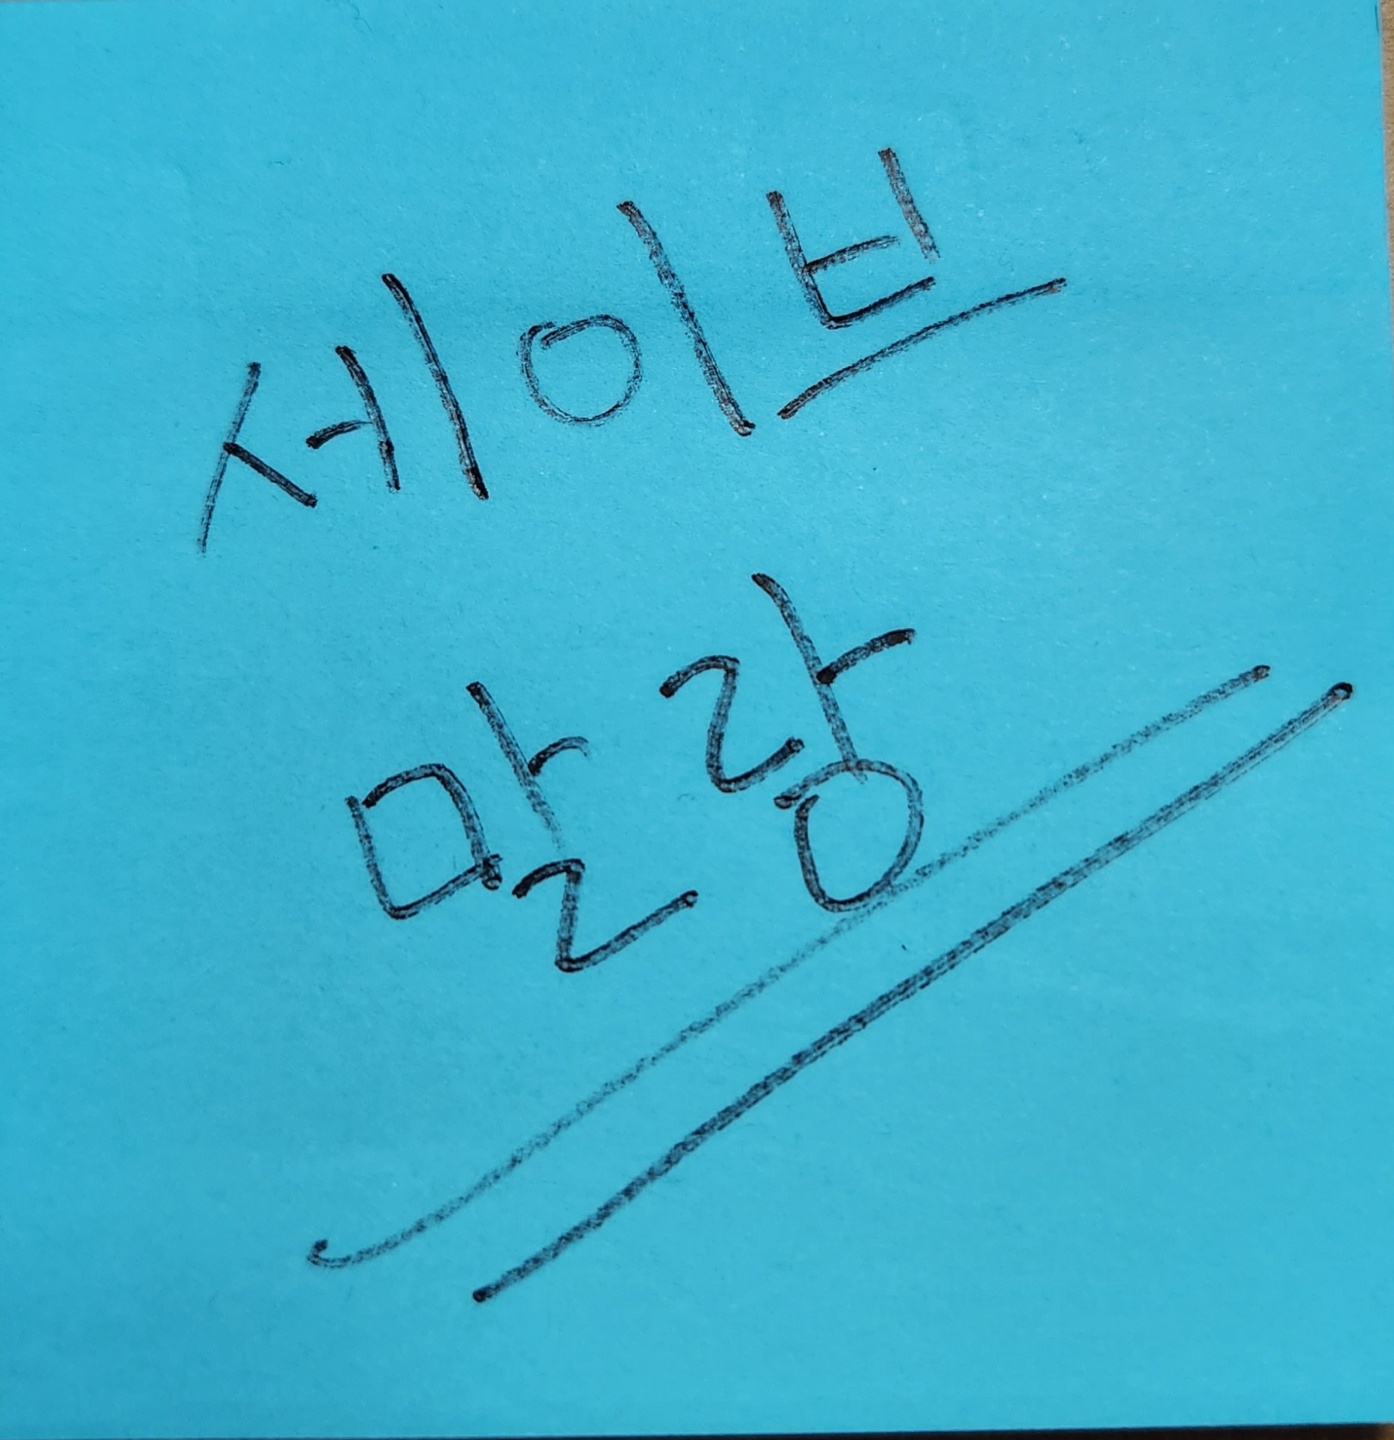 세이브
말랑